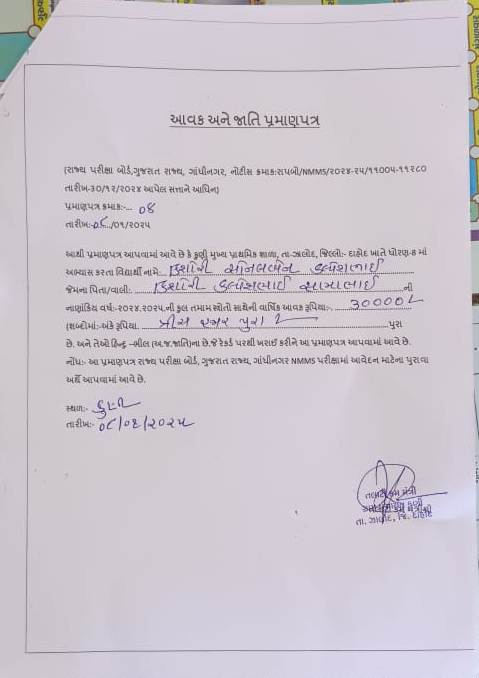 આવક અને જાતિ પ્રમાણપત્ર
(રાજ્ય પરીક્ષા બોર્ડ,ગુજરાત રાજ્ય, ગાંધીનગર, નોટીસ ક્રમાક:રાપબો/NMMS/૨૦૨૪-૨૫/૧૧૦૦૫-૧૧૨૮૦
તારીખ-૩૦/૧૨/૨૦૨૪ આપેલ સત્તાને આધિન)
પ્રમાણપત્ર ક્રમાક:-... ૦૪
તારીખ:-૦૮/૦૧/૨૦૨૫
આથી પ્રમાણપત્ર આપવામાં આવે છે કે કુણી મુખ્ય પ્રાથમિક શાળા, તા-ઝાલોદ, જિલ્લો:- દાહોદ ખાતે ધોરણ-૮ માં
અભ્યાસ કરતા વિદ્યાર્થી નામે... કિશોરી કલ્પેશભાઈ
જેમના પિતા/વાલી:. કિશોરી કલ્પેશભાઈ ની
નાણાંકિય વર્ષ:-૨૦૨૪.૨૦૨૫.ની કુલ તમામ સ્રોતો સાથેની વાર્ષિક આવક રૂપિયા:-. ૩૦૦૦૦/-
(શબ્દોમાં:-અંકે રૂપિયા ત્રીસ હજાર પુરા પુરા
છે. અને તેઓ હિન્દુ –ભીલ (અ.જ.જાતિ)ના છે.જે રેકર્ડ પરથી ખરાઈ કરીને આ પ્રમાણપત્ર આપવામાં આવે છે.
નોંધ:- આ પ્રમાણપત્ર રાજ્ય પરીક્ષા બોર્ડ, ગુજરાત રાજ્ય, ગાંધીનગર NMMS પરીક્ષામાં આવેદન માટેના પુરાવા
અર્થે આપવામાં આવે છે.
સ્થળ:- કુણી
તારીખ:- ૦૮/૦૧/૨૦૨૫
તલાટી કમ મંત્રી
કુણી
તા. ઝાલોદ, જિ. દાહોદ